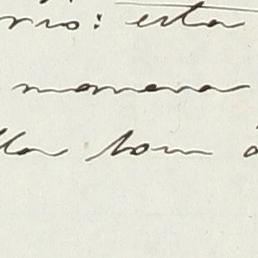 rio: esta
manera
lla tom